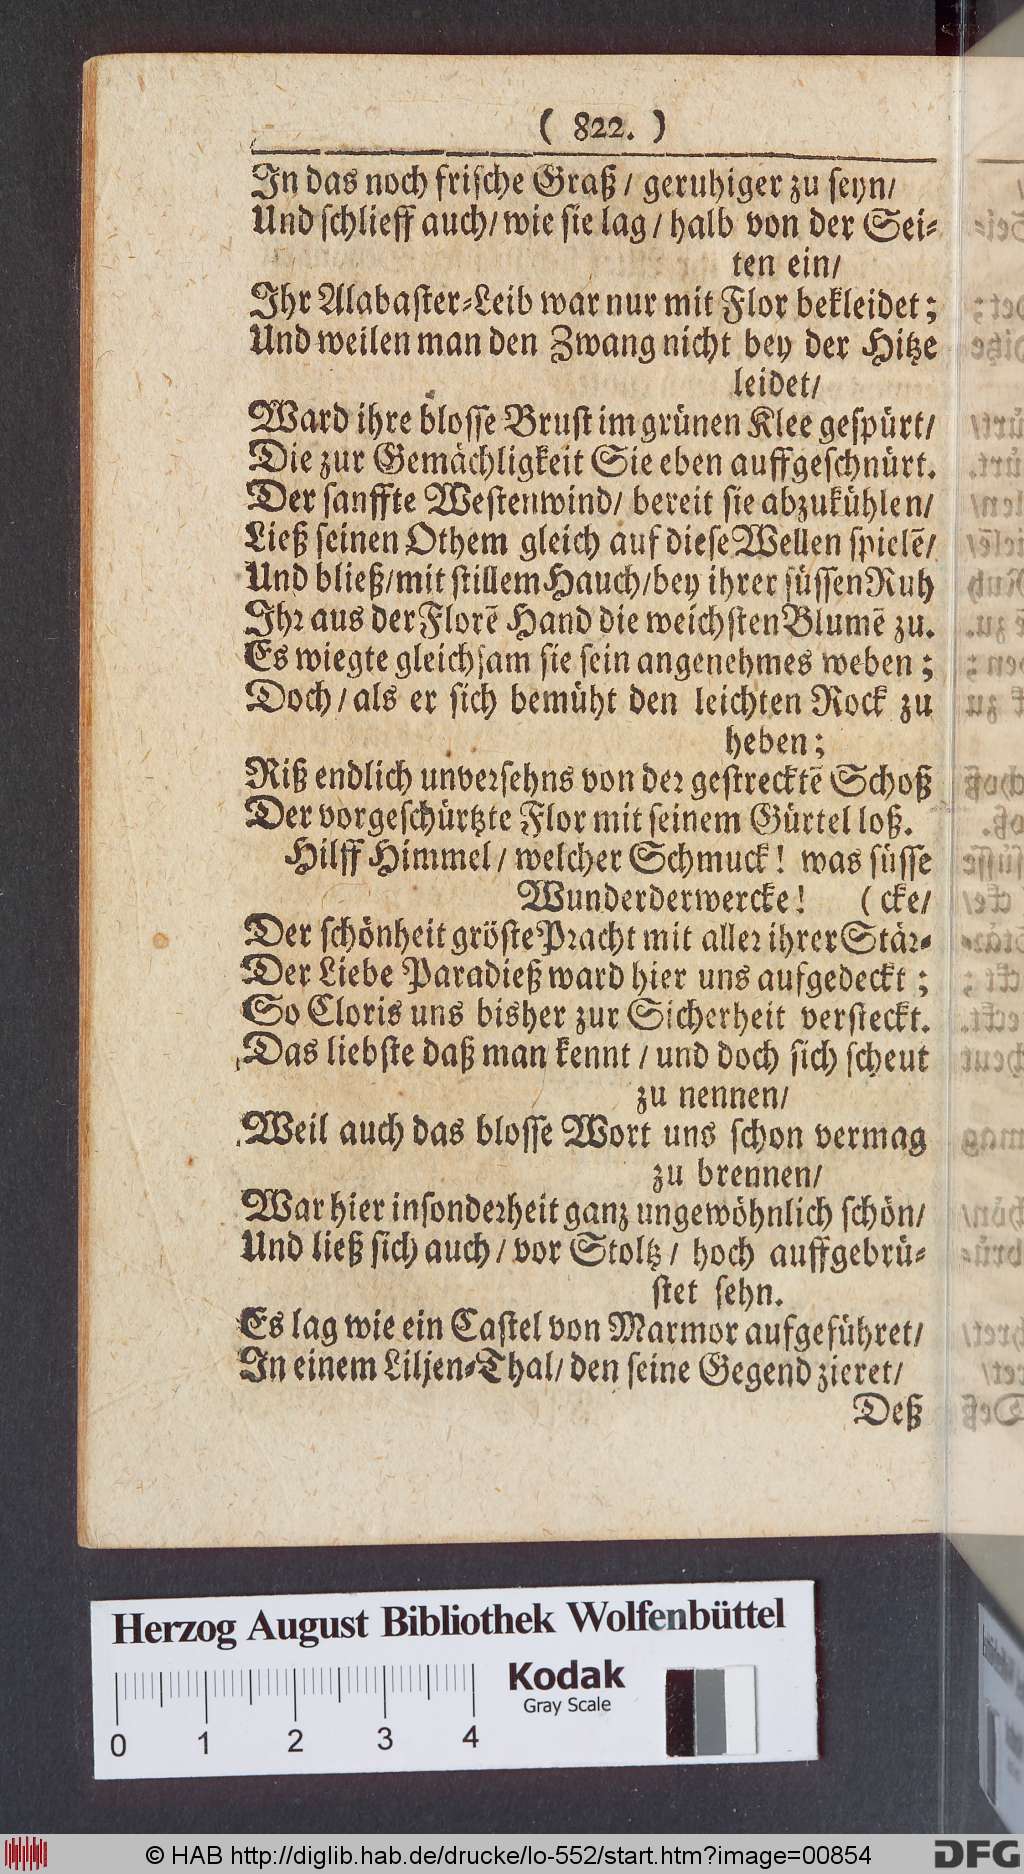 ( 822. )
In das noch frische Graß / geruhiger zu seyn/
Und schlieff auch/ wie sie lag / halb von der Sei-
ten ein/
Ihr Alabaster-Leib war nur mit Flor bekleidet ;
Und weilen man den Zwang nicht bey der Hitze
leidet/
Ward ihre blosse Brust im grünen Klee gespürt/
Die zur Gemächligkeit Sie eben auffgeschnürt.
Der sanffte Westenwind/ bereit sie abzukühlen/
Ließ seinen Othem gleich auf diese Wellen spielẽ/
Und bließ/mit stillem Hauch/bey ihrer süssen Ruh
Ihr aus der Florẽ Hand die weichsten Blumẽ zu.
Es wiegte gleichsam sie sein angenehmes weben ;
Doch/ als er sich bemüht den leichten Rock zu
heben ;
Riß endlich unversehns von der gestrecktẽ Schoß
Der vorgeschürtzte Flor mit seinem Gürtel loß.
Hilff Himmel / welcher Schmuck ! was süsse
Wunderderwercke ! ( cke/
Der schönheit gröste Pracht mit aller ihrer Stär-
Der Liebe Paradieß ward hier uns aufgedeckt ;
So Cloris uns bisher zur Sicherheit versteckt.
Das liebste daß man kennt / und doch sich scheut
zu nennen/
Weil auch das blosse Wort uns schon vermag
zu brennen/
War hier insonderheit ganz ungewöhnlich schön/
Und ließ sich auch / vor Stoltz / hoch auffgebrü-
stet sehn.
Es lag wie ein Castel von Marmor aufgeführet/
In einem Liljen-Thal/ den seine Gegend zieret/
Deß
Herzog August Bibliothek Wolfenbüttel
Kodak
Gray Scale
0 1 2 3 4
© HAB http://diglib.hab.de/drucke/lo-552/start.htm?image=00854
DFG